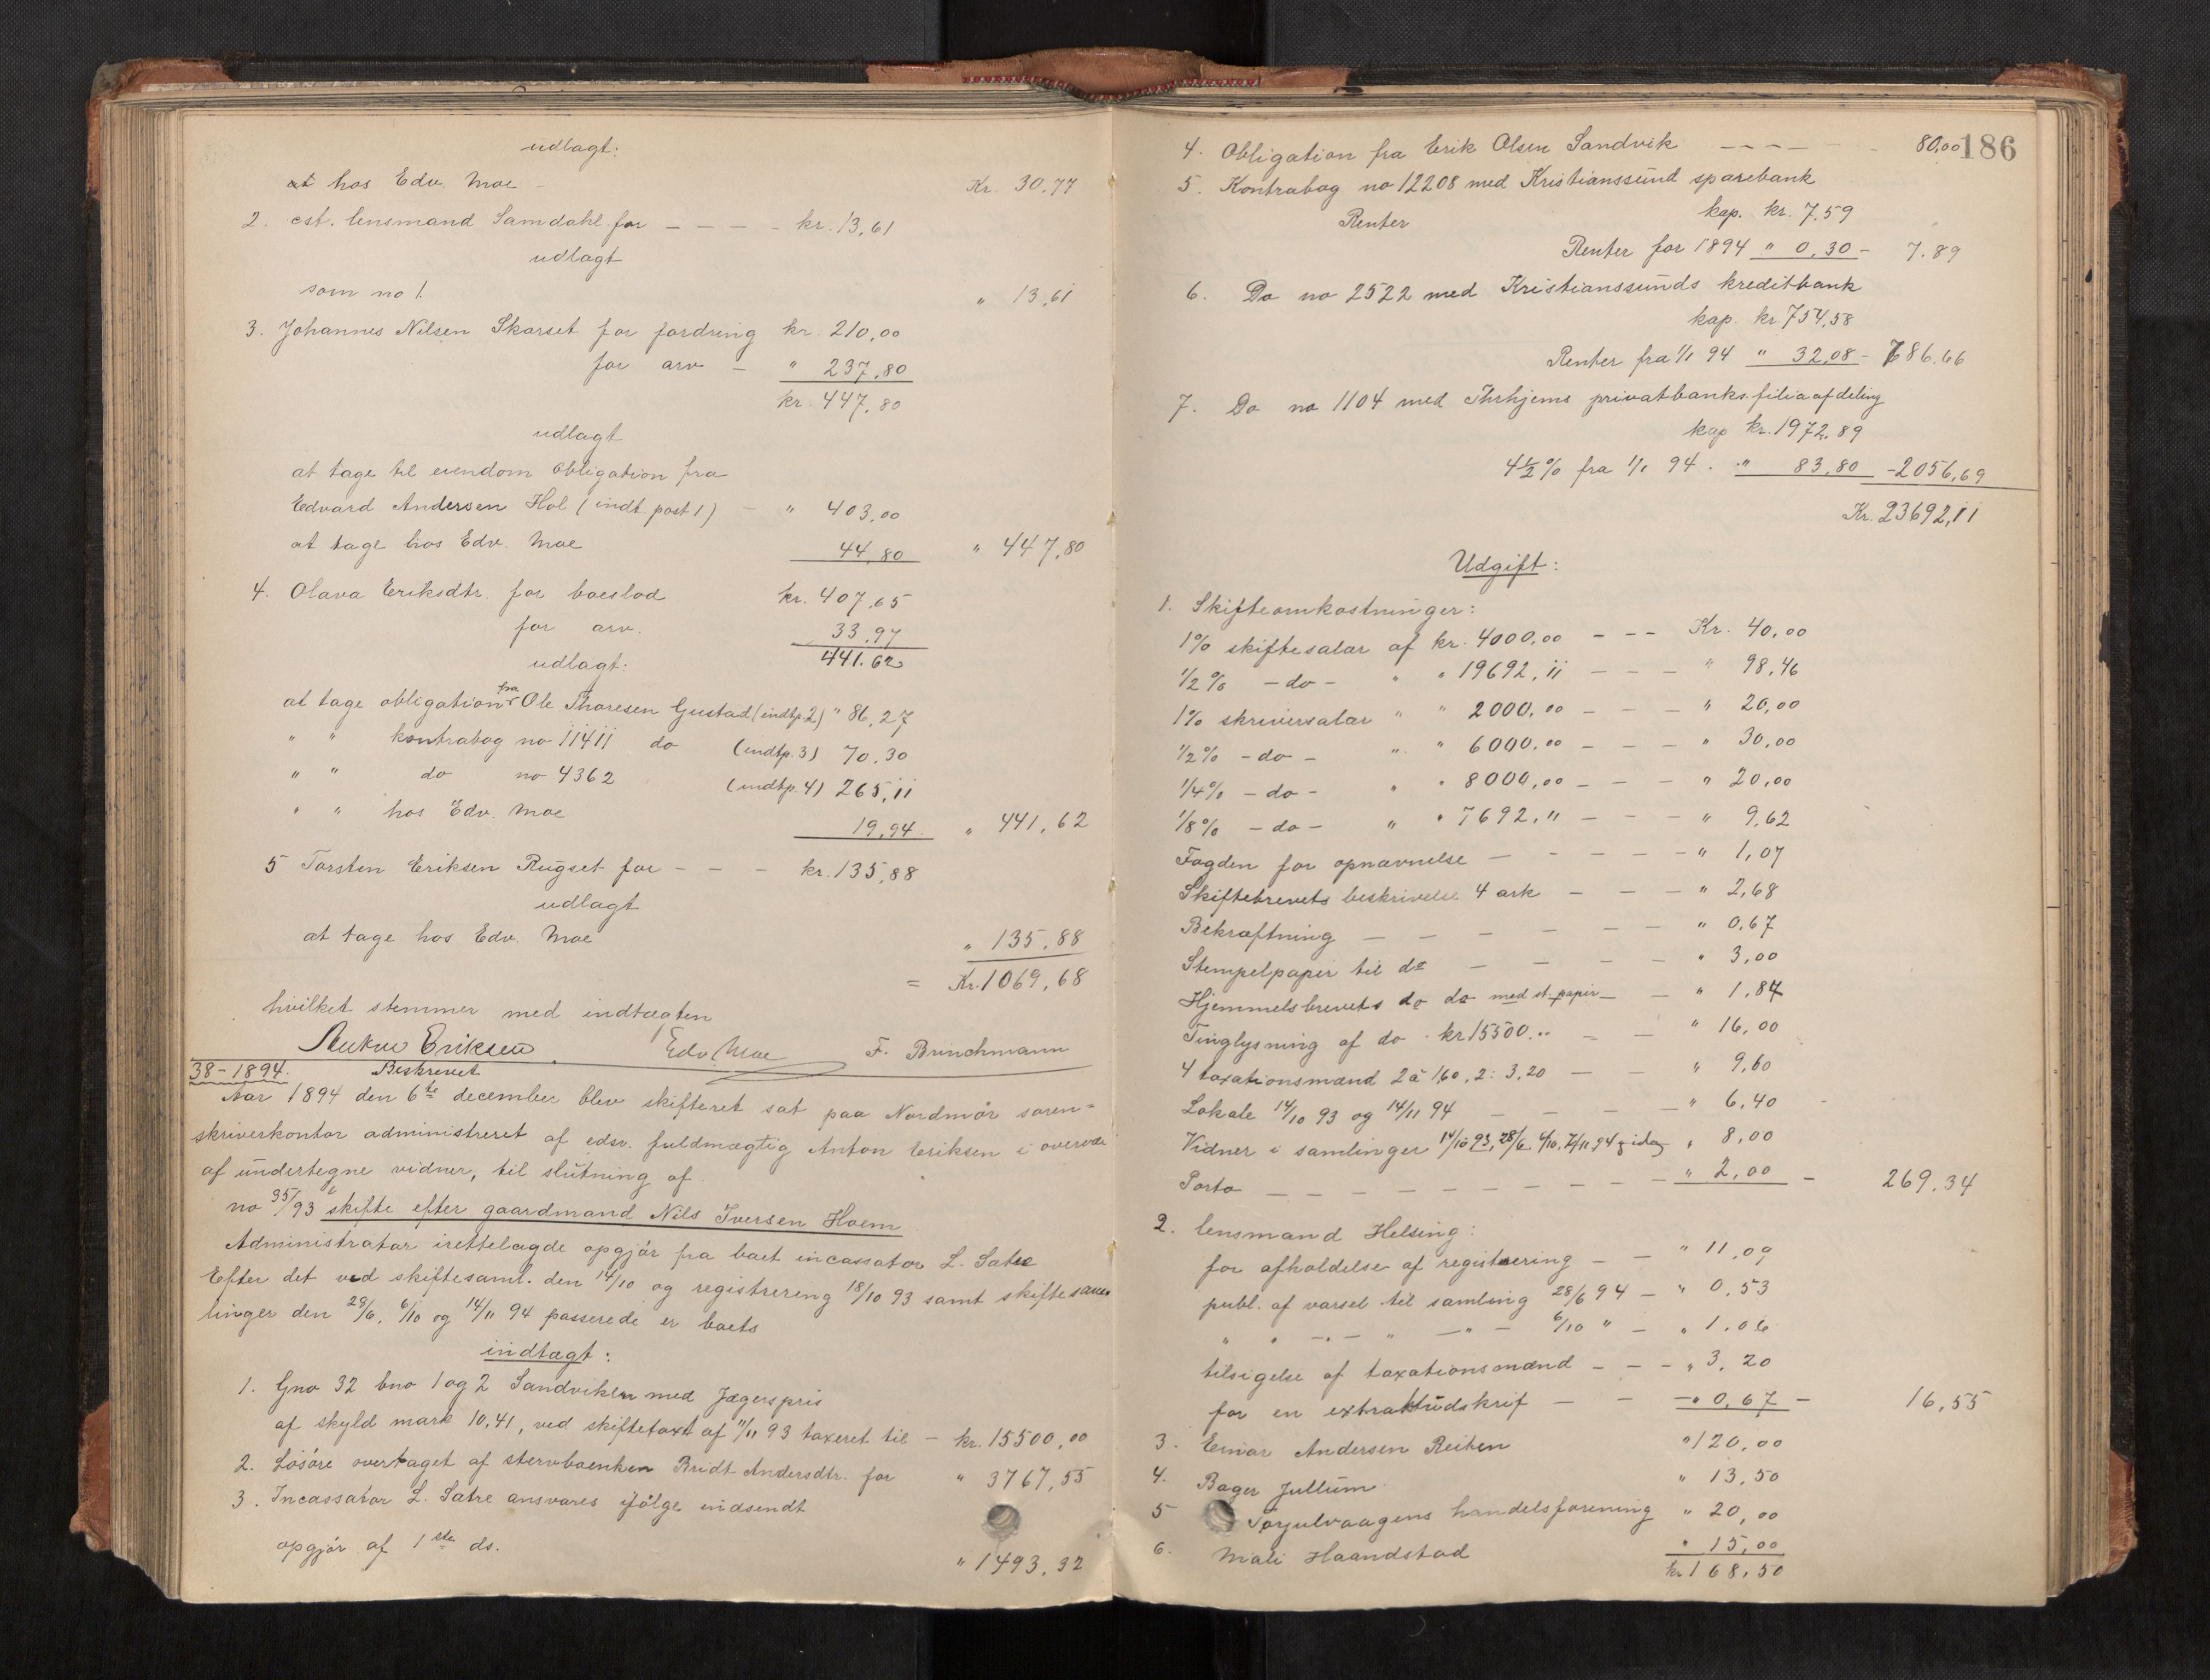 udlagt:
at hos Edv. Moe – Kr. 30,77
2. cst. lensmand Samdahl for – – – – kr. 13,61
udlagt
som no 1. " 13,61
3. Johannes Nilsen Skarset for fordring kr. 210,00
for arv – " 237,80
kr. 447,80
udlagt
at tage til eiendom Obligation fra
Edvard Andersen Hol (indt. post 1) – " 403,00
at tage hos Edv. Moe 44,80 " 447,80
4. Olava Eriksdtr. for boeslod kr. 407,65
for arv. 33,97
udlagt: 441.62
at tage obligation fra Ole Thoresen Gustad (indtp. 2) " 86,27
" " kontrabog no 11411 do (indtp. 3) 70.30
" " do no 4362 (indtp. 4) 265,11
" " hos Edv. Moe 19,94 " 441,62
5 Torsten Eriksen Rugset for – – – kr. 135,88
udlagt
at tage hos Edv. Moe " 135,88
= Kr. 1069,68
hvilket stemmer med indtægten
Anton Eriksen. Edv Moe F. Brinchmann
38–1894. Beskrevet
Aar 1894 den 6te december blev skifteret sat paa Nordmør soren=
skriverkontor administreret af edsv. fuldmægtig Anton Eriksen i overvær
af undertegne vidner, til slutning af
no 35/93 skifte efter gaardmand Nils Iversen Hoem
Administrator irettelagde opgjør fra boet incassator L. Satre
Efter det ved skiftesaml. den 14/10 og registrering 18/10 93 samt skiftesam
linger den 28/6, 6/10 og 14/11 94 passerede er boets
indtægt:
1. Gno 32 bno 1 og 2 Sandviken med Jægerspris
af skyld mark 10,41, ved skiftetaxt af 11/11 93 taxeret til – kr. 15500,00
2. Løsøre overtaget af stervboenken Bridt Andersdtr. for " 3767,55
3. Incassator L. Satre ansvares ifølge indsendt
opgjør af 1ste ds. " 1493,32
186
4. Obligation fra Erik Olsen Sandvik – – – – – – 80,00
5. Kontrabog no 12208 med Kristianssund sparebank
kap. kr. 7.59
Renter
Renter for 1894 " 0,30 – 7.89
6. Do no 2522 med Kristianssunds kreditbank
kap. kr 754,58
Renter fra 1/1 94 " 32,08 – 786.66
7. Do no 1104 med Thrhjems privatbanks filiaafdeling
kap kr. 1972,89
4½% fra 1/1 94. " 83,80 – 2056,69
Kr. 23692,11
Udgift:
1. Skifteomkostninger:
1% skiftesalar af kr. 4000,00 – – – Kr. 40,00
1/2% – do – " " 19692,11 – – – " 98,46
1% skriversalar " " 2000,00 – – – " 20,00
1/2% – do – " " 6000,00 – – – " 30,00
1/4% – do – " " 8000,00 – – – " 20,00
1/8% – do – " " 7692,11 – – – " 9,62
Fogden for opnævnelse – – – – – " 1,07
Skiftebrevets beskrivelse 4 ark – – – " 2,68
Bekræftning – – – – – – " 0,67
Stempelpapir til do – – – – " 3,00
Hjemmelsbrevets do do med st. papir – – " 1,84
Tinglysning af do kr 15500.. – – " 16,00
4 taxationsmænd 2 à 1,60, 2: 3,20 – – " 9,60
Lokale 14/10 93 og 14/11 94 – – – – " 6,40
Vidner i samlinger 14/10 93, 28/6 6/10, 14/11 94 & idag " 8,00
Porto – – – – – – – – – " 2,00 – 269.34
2. lensmand Helsing:
for afholdelse af registrering – – " 11,09
publ. af varsel til samling 28/6 94 – " 0,53
" " –"– " –"– 6/10 " – " 1.06
tilsigelse af taxationsmænd – – – " 3,20
for en extraktudskrif – – – " 0,67 – 16,55
3. Einar Andersen Reiten " 120,00
4. Bager Jullum " 13,50
5 Torjulvaagens handelsforening " 20,00
6. Mali Haandstad " 15,00
kr. 168,50